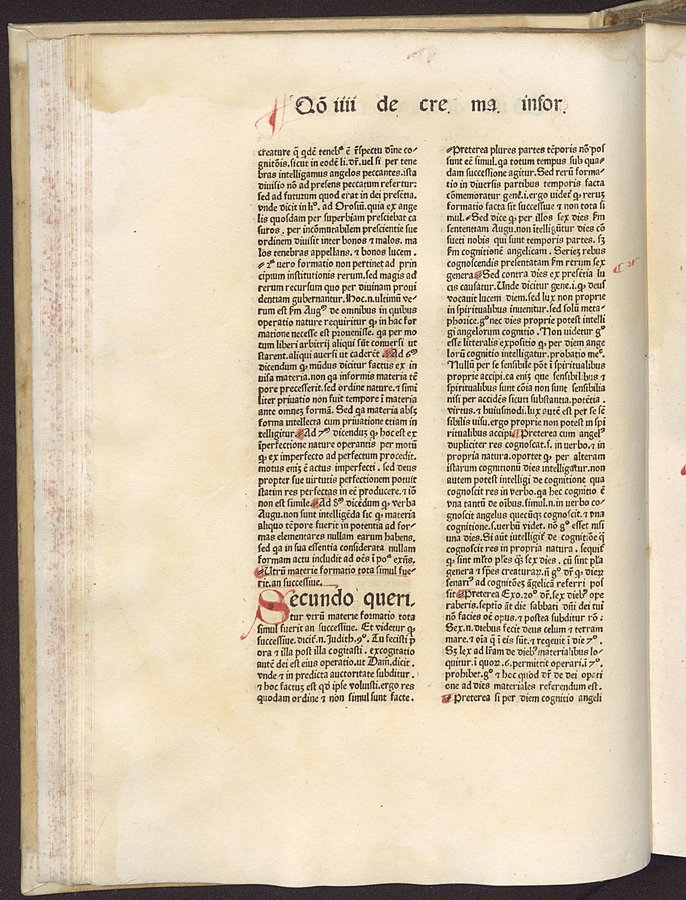 Qō iiii de cre. ma. infor.
creature q̄ qdē teneb̾ ē r̄spectu dīne co⸗
gnitōis. sicut in eodē li. dr̄. uel si per tene
bras intelligamus angelos peccantes. ista
diuisio nō ad presens peccatum refertur:
sed ad futurum quod erat in dei presētia.
vnde dicit in li°. ad Orosiū. quia ex ange
lis quosdam per superbiam presciebat ca
suros. per incōmutabilem prescientie sue
ordinem diuisit inter bonos ⁊ malos. ma
los tenebras appellans. ⁊ bonos lucem.
2ᵃ uero formatio non pertinet ad prin
cipium institutionis rerum. sed magis ad
rerum recursum quo per diuinam proui
dentiam gubernantur. Hoc. n. ultimū ve⸗
rum est s̄m Augᵐ de omnibus in quibus
operatio nature requiritur q̨ in hac for
matione necesse est ꝓuenisse. qa per mo
tum liberi arbitrij aliqui sūt conuersi ut
starent. aliqui auersi ut caderēt Ad 6ᵐ
dicendum q̨ mūdus dicitur factus ex in
uisa materia. non qa informis materia tē
pore precesserit. sed ordine nature. ⁊ simi
liter priuatio non fuit tempore ī materia
ante omneꝫ formā. Sed qa materia absꝫ
forma intellecta cum priuatione etiam in
telligitur. Ad 7ᵐ dicenduꝫ q̨ hoc est ex
īperfectione nature operantis per motū
q̨ ex imperfecto ad perfectum procedit.
motus eniꝫ ē actus imperfecti. sed deus
propter sue uirtutis perfectionem potuit
statim res perfectas in eē producere. ⁊ iō
non est simile. Ad 8ᵐ dicēdum q̨ verba
Augu. non sunt intelligēda sic q̨ materia
aliquo tēpore fuerit in potentia ad for⸗
mas elementares nullam earum habens.
sed qa in sua essentia considerata nullam
formam actu includit ad oēs ī po° exn̄s.
Utrū materie formatio tota simul fue⸗
rit. an successiue.
Secundo queri.
tur verū materie formatio tota
simul fuerit an successiue. Et videtur q̨
successiue. dicit̄. n. Judith. 9°. Tu fecisti p̄
ora ⁊ illa post illa cogitasti. excogitatio
autē dei est eius operatio. ut Dam. dicit.
vnde ⁊ in predicta auctoritate subditur.
⁊ hoc factuꝫ est qd̄ ipse voluisti. ergo res
quodam ordine ⁊ non simul sunt facte.
Preterea plures partes tēporis nō pos
sunt eē simul. qa totum tempus sub qua⸗
dam successione agitur. Sed rerū forma⸗
tio in diuersis partibus temporis facta
cōmemoratur genē. i. ergo uidet̄ q̨ reruꝫ
formatio facta sit successiue ⁊ non tota si
mul. Sed dice q̨ per illos sex dies s̄m
sententiam Augu. non itelligūtur dies cō
sueti nobis qui sunt temporis partes. sꝫ
s̄m cognitionē angelicam. Series rebus
cognoscendis presentatam s̄m rerum sex
genera Sed contra dies ex presētia lu
cis causatur. Unde dicitur gene. i. q̨ deus
vocauit lucem diem. sed lux non proprie
in spiritualibus inuenitur. sed solū meta⸗
phorice. g° nec dies proprie potest intelli
gi angelorum cognitio. Non uidetur g°
esse litteralis expositio q̨ per diem ange
lorū cognitio intelligatur. probatio me°.
Nullū per se sensibile pōt ī spiritualibus
proprie accipi. ea eniꝫ que sensibilibus ⁊
spiritualibus sunt cōia non sunt sensibilia
nisi per accidēs sicuti substantia. potētia.
virtus. ⁊ huiusmodi. lux autē est per se sē
sibilis uisu. ergo proprie non potest in spi
ritualibus accipi Preterea cum angelᵒ
dupliciter res cognoscat. s. in verbo. ⁊ in
propria natura. oportet q̨ per alteram
istarum cognitionū dies intelligatur. non
autem potest intelligi de cognitione qua
cognoscit res in verbo. qa hec cognitio ē
vna tantū de oībus. simul. n. in verbo co⸗
gnoscit angelus quecūqꝫ cognoscit. ⁊ vna
cognitione. s. uerbū videt. nō g° esset nisi
una dies. Si aūt itelligit̄ de cognitiōe q̄
cognoscit res in propria natura. sequit̄
q̨ sint multo ples q̄ sex dies. cū sint pla
genera ⁊ spēs creaturaꝝ. n̄ g° dr̄ q̨ dierꝫ
senariᵒ ad cognitōeꝫ āgelicā referri pos
sit Preterea Exo. 20° dr̄. sex diebᵒ ope
raberis. septio āt die sabbati dn̄i dei tui
nō facies oē opus. ⁊ postea subditur rō.
Sex. n. diebus fecit deus celum ⁊ terram
mare. ⁊ oīa q̄ i eis sūt. ⁊ requieit i die 7°.
Sꝫ lex ad lr̄am de diebᵒ materialibus lo⸗
quitur. i quoꝝ. 6. permittit operari. i 7°.
prohibet. g° ⁊ hec quod dr̄ de dei opati
one ad dies materiales referendum est.
Preterea si per diem cognitio angeli